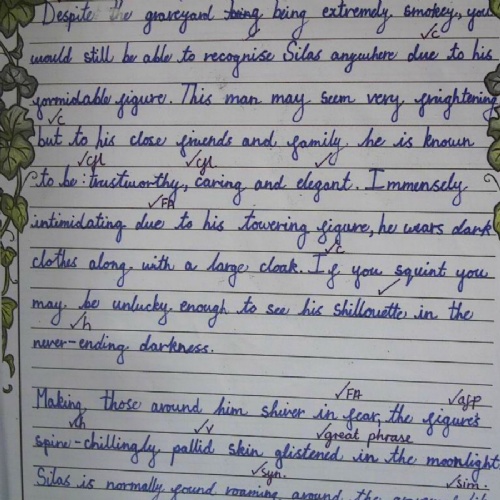 Despite the graveyard being being extremely smokey, you
✓c
would still be able to recognise Silas anywhere due to his
formidable figure. This man may seem very frightening
✓c
but to his close friends and family he is known
✓cyl ✓cyl ✓
to be: trustworthy, caring and elegant. Immensely
✓FA
intimidating due to his towering figure, he wears dark
✓c
clothes along with a large cloak. If you squint you
✓
may be unlucky enough to see his shillouette in the
✓h
never-ending darkness.
✓FA
Making those around him shiver in fear, the figure's
✓h ✓v ✓great phrase
spine-chillingly pallid skin glistened in the moonlight
✓syn. ✓sim.
Silas is normally found roaming around the